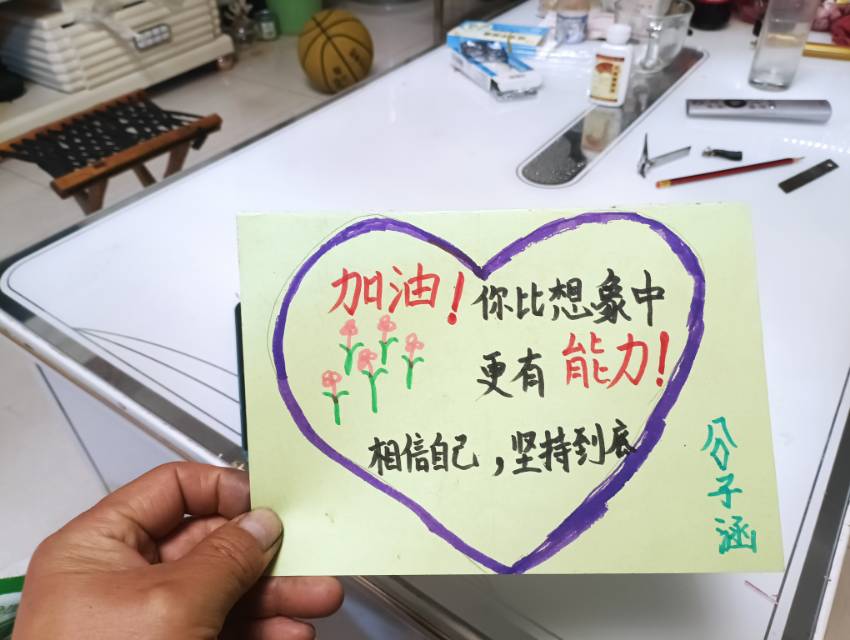 加油！你比想象中
更有能力！
相信自己，坚持到底
分子涵